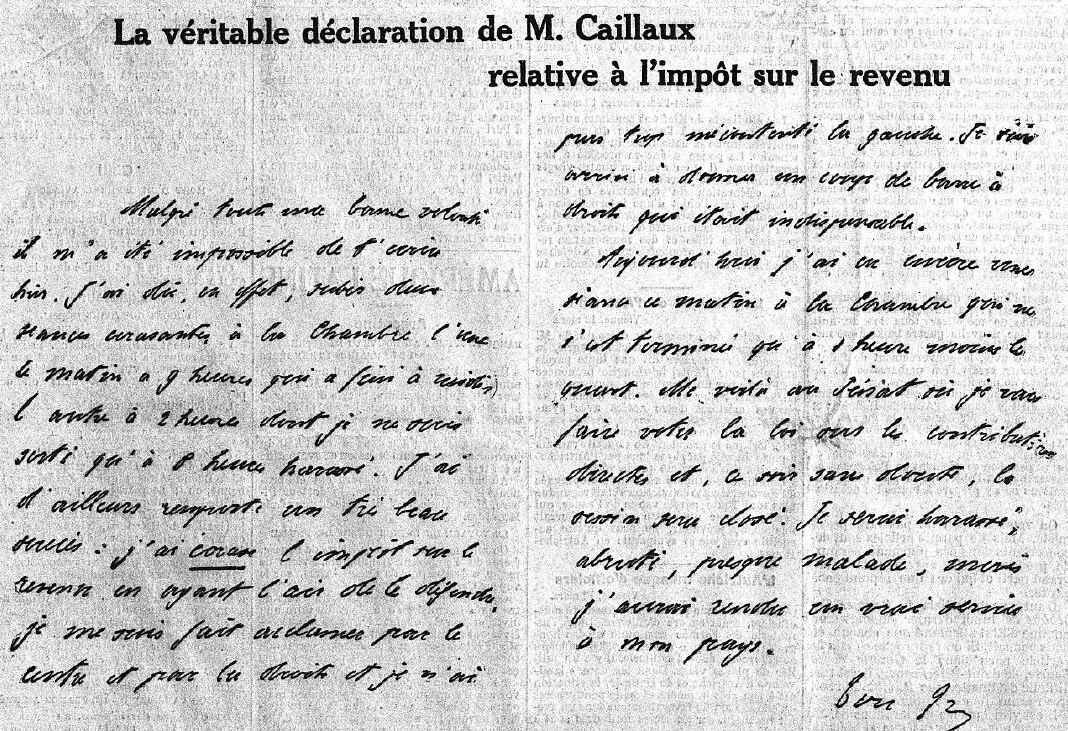 La véritable déclaration de M. Caillaux
relative à l'impôt sur le revenu
Malgré toute ma bonne volonté
il m'a été impossible de t'écrire
hier. J'ai dû, en effet, subir deux
séances écrasantes à la Chambre l'une
le matin à 9 heures qui a fini à midi,
l'autre à 2 heures dont je ne suis
sorti qu'à 8 heures harassé. J'ai
d'ailleurs remporté un très beau
succès : j'ai écrasé l'impôt sur le
revenu en ayant l'air de le défendre,
je me suis fait acclamer par le
centre et par la droite et je n'ai
pas trop mécontenté la gauche. Je suis
arrivé à donner un coup de barre à
droite qui était indispensable.
Aujourd'hui j'ai eu encore une
séance ce matin à la Chambre qui ne
s'est terminée qu'à 1 heure moins le
quart. Me voilà au Sénat où je vais
faire voter la loi sur les contributions
directes et, ce soir sans doute, la
session sera close. Je serai harassé,
abruti, presque malade, mais
j'aurai rendu un vrai service
à mon pays.
Ton Jo